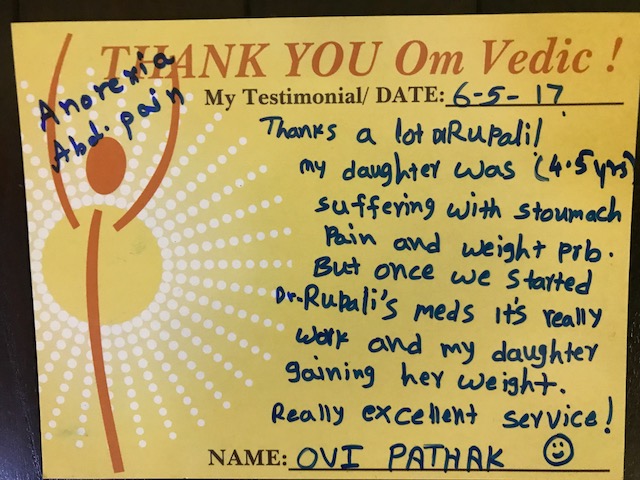 THANK YOU Om Vedic !
Anorexia
Abd. pain
My Testimonial/ DATE: 6-5-17
Thanks a lot Dr Rupali!
my daughter was (4.5 yrs)
suffering with stoumach
Pain and weight prb.
But once we started
Dr. Rupali's meds it's really
work and my daughter
gaining her weight.
Really excellent service!
NAME: OVI PATHAK